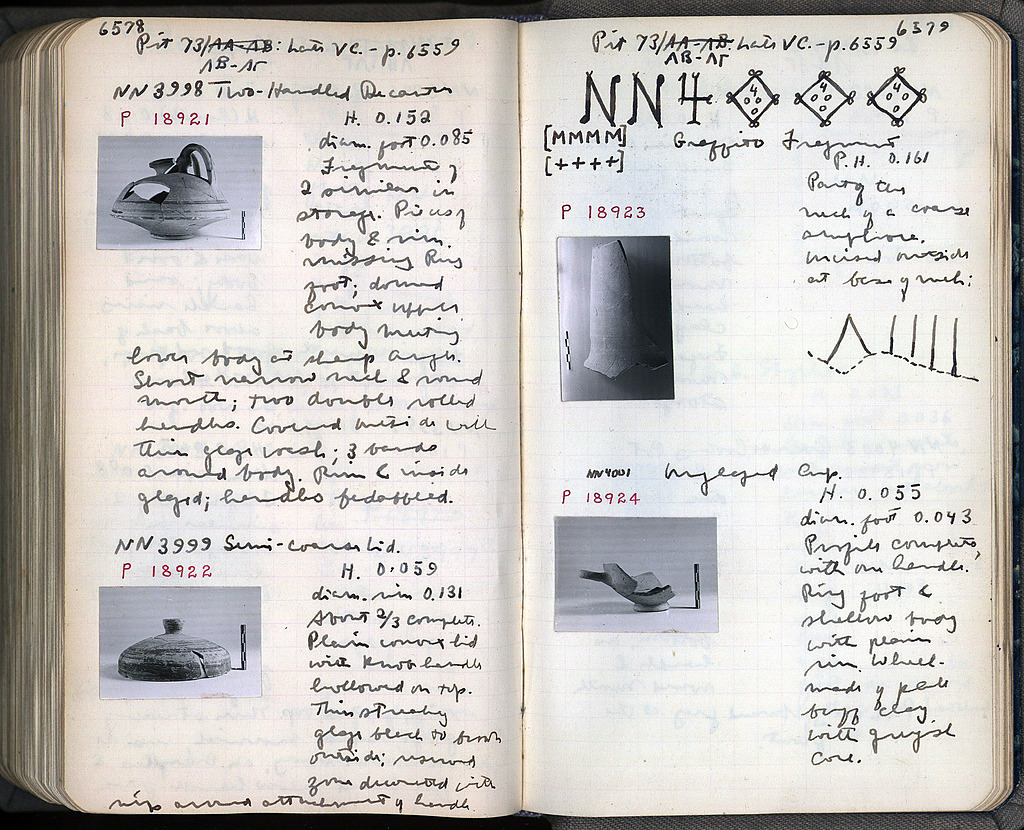 6578
Pit 73/AA-AB: Late VC. - p. 6559
AB-AΓ
NN 3998 Two-Handled Decanter
P 18921
H. 0.152
diam. foot 0.085
Fragment of
2 similar in
storage. Pieces of
body & rim
missing Ring
foot; domed
convex upper
body meeting
lower body at sharp angle.
Short narrow neck & round
mouth; two double rolled
handles. Covered outside with
thin glaze wash; 3 bands
around body. Rim & inside
glazed; handles
NN 3999 Semi-coarse Lid.
P 18922
H. 0.059
diam. rim 0.131
About 2/3 complete.
Plain convex lid
with knob handle
hollowed on top.
Thin streaky
glaze black to brown
outside; reserved
zone decorated with
around attachment of handle.
6579
Pit 73/AA-AB: Late VC. - p. 6559
AB-AΓ
NN 4
4
4
4
[MMMM]
[++++]
Graffito Fragment
P.H. 0.161
P 18923
Part of the
neck of a coarse
amphora.
incised outside
at base of neck:
NN4001 Unglazed Cup.
P 18924
H. 0.055
diam. foot 0.043
Profile complete,
with one handle.
Ring foot &
shallow body
with plain
rim. Wheel-
made of pale
buff clay
with greyish
core.